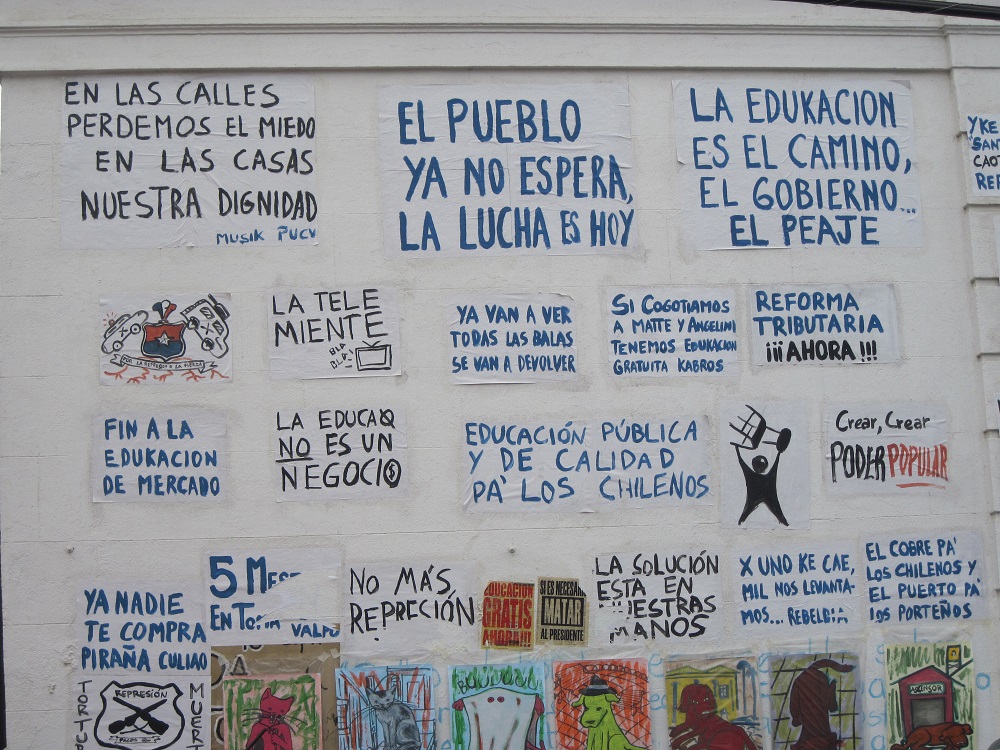 EN LAS CALLES
PERDEMOS EL MIEDO
EN LAS CASAS
NUESTRA DIGNIDAD
MUSIK PUCV
EL PUEBLO
YA NO ESPERA,
LA LUCHA ES HOY
LA EDUKACION
ES EL CAMINO,
EL GOBIERNO...
EL PEAJE
YKE
POR LA RAZON O LA FUERZA
LA TELE
MIENTE
BLA
BLA!
YA VAN A VER
TODAS LAS BALAS
SE VAN A DEVOLVER
SI COGOTIAMOS
A MATTE Y ANGELINI
TENEMOS EDUKACION
GRATUITA KABROS
REFORMA
TRIBUTARIA
¡¡¡AHORA!!!
FIN A LA
EDUKACION
DE MERCADO
LA EDUCAO
NO ES UN
NEGOCIO
EDUCACIÓN PÚBLICA
Y DE CALIDAD
PA' LOS CHILENOS
Crear, Crear
PODER POPULAR
YA NADIE
TE COMPRA
PIRAÑA CULIAO
5 MESE
EN TOMA
VALPO
NO MÁS
REPRECIÓN
EDUCACION
GRATIS
AHORA!!!
SI ES NECESARIO
MATAR
AL PRESIDENTE
LA SOLUCIÓN
ESTA EN
NUESTRAS
MANOS
X UNO KE CAE,
MIL NOS LEVANTA-
MOS... REBELDIA
EL COBRE PA'
LOS CHILENOS Y
EL PUERTO PA'
LOS PORTEÑOS
REPRESIÓN
TORTUR
MUERT
ASCENSOR